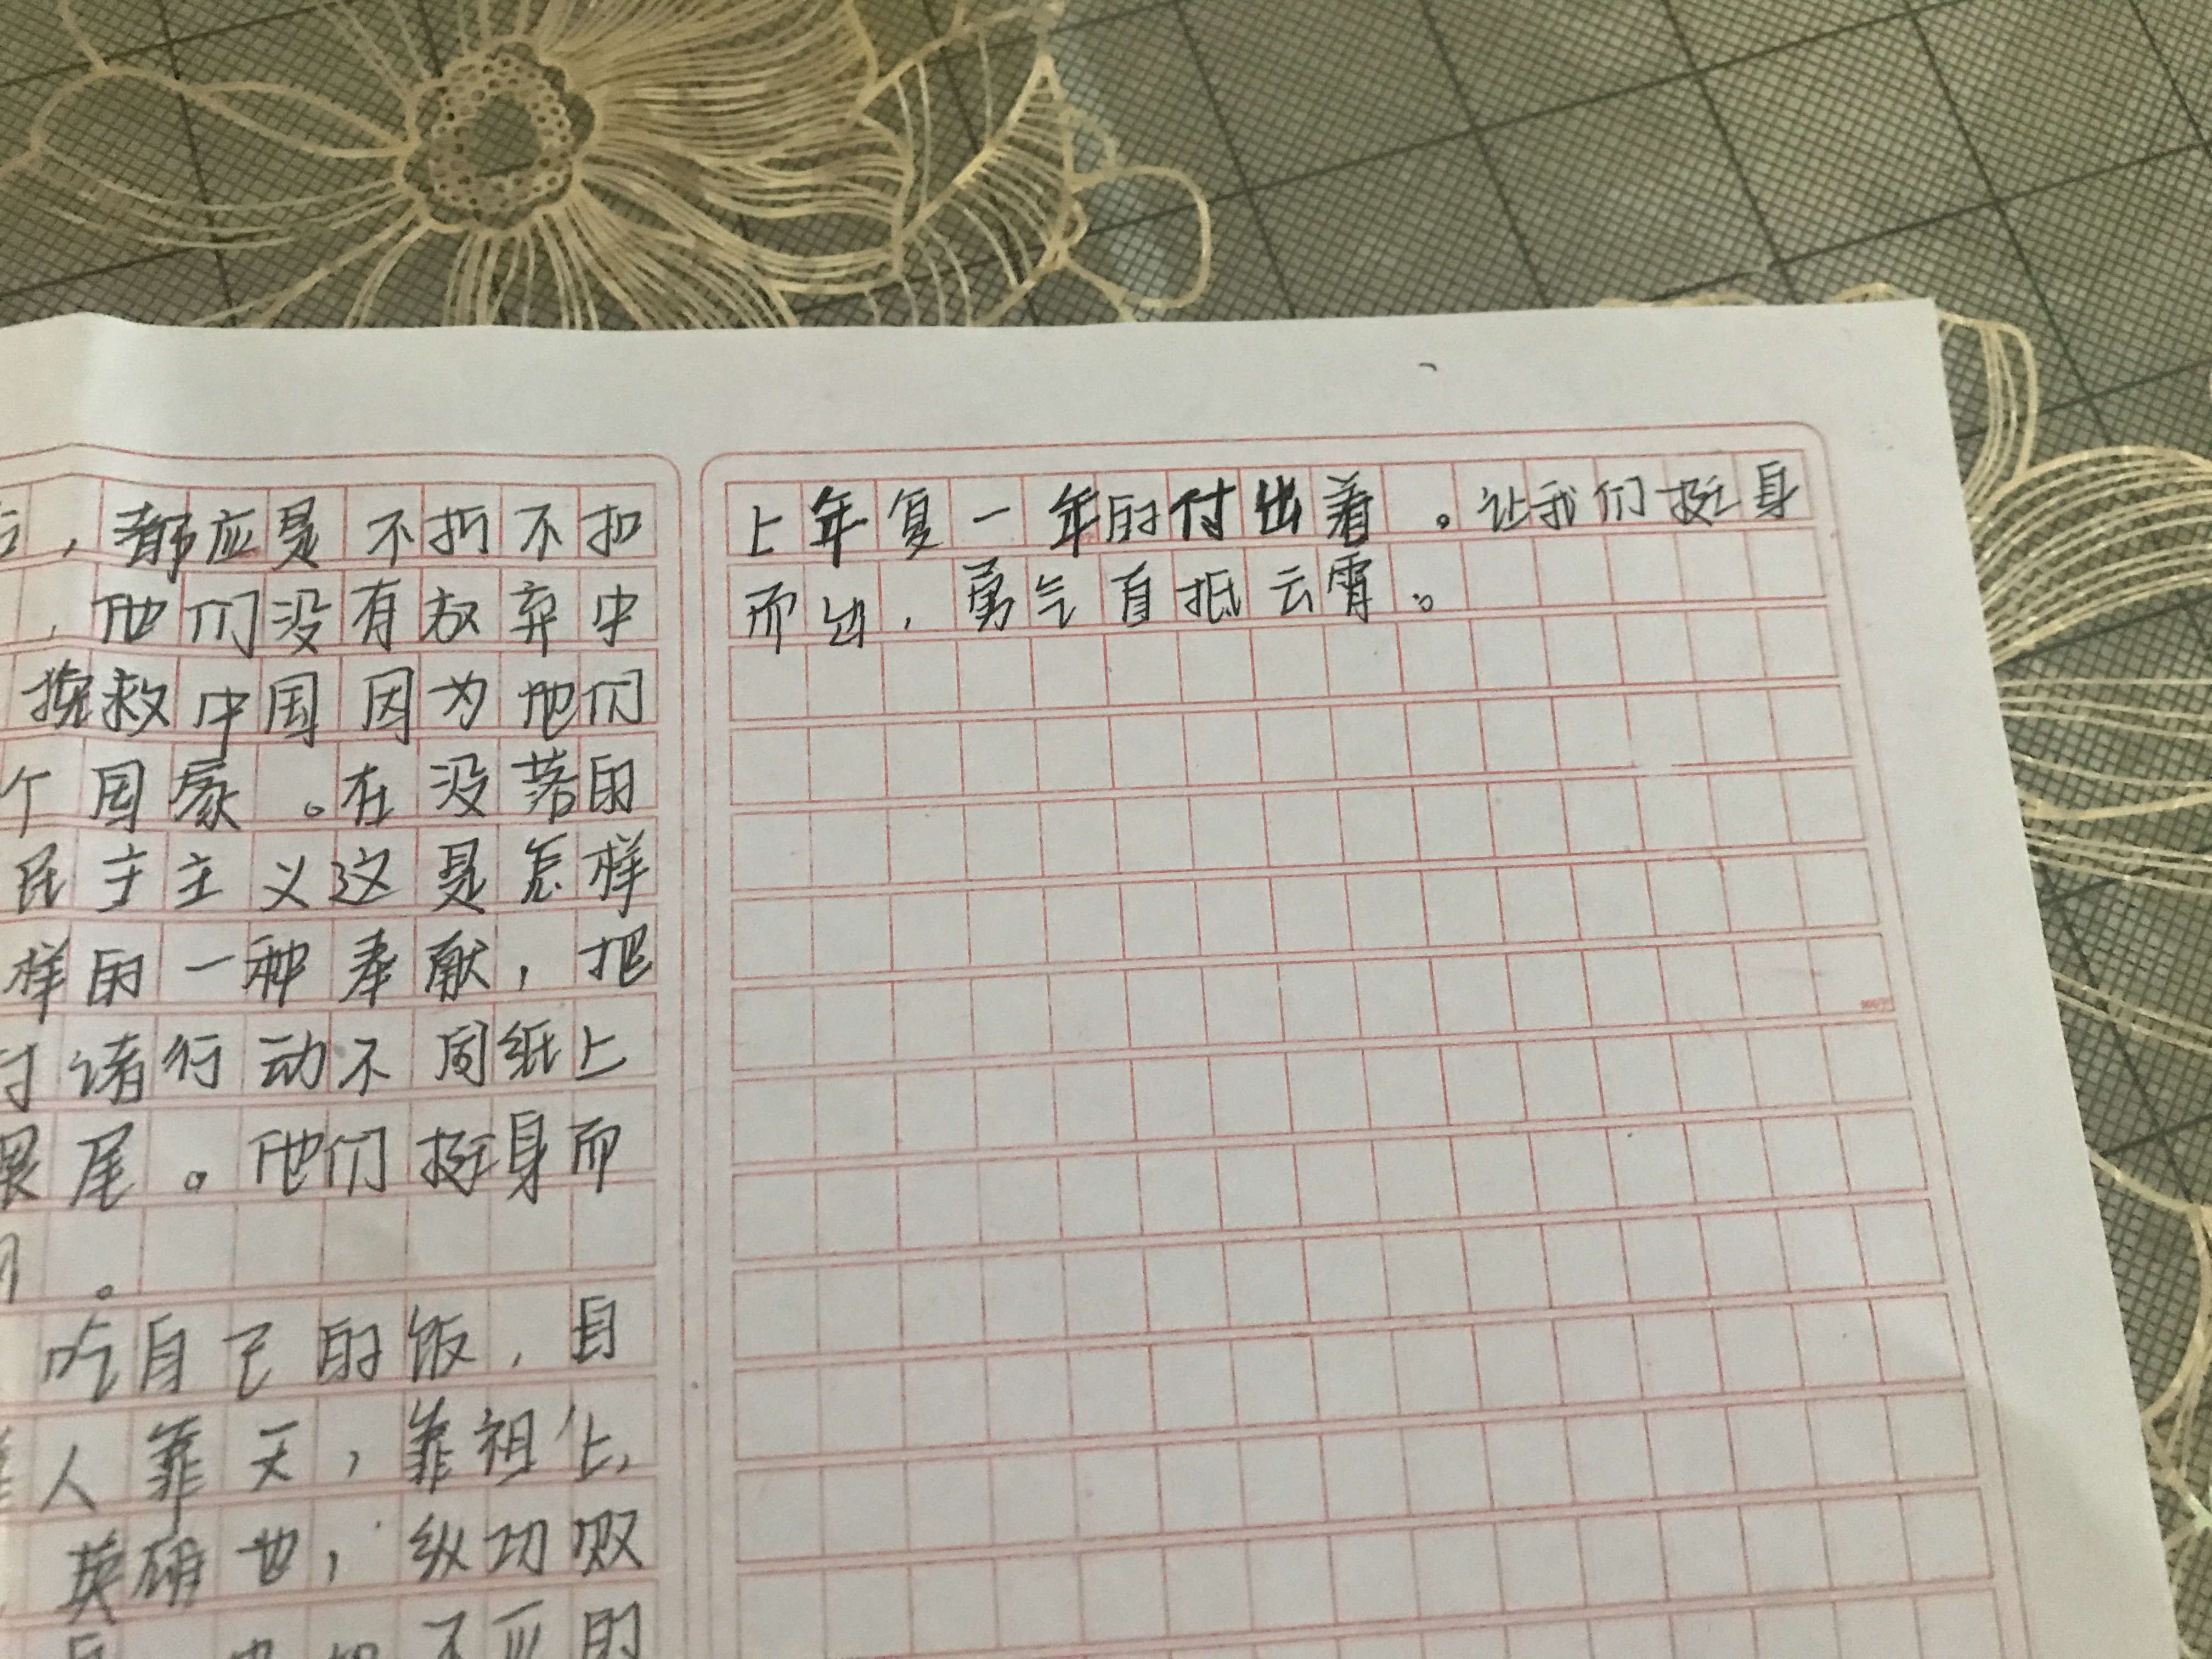 ，都应是不折不扣
，他们没有放弃中
挽救中国因为他们
个国家。在没落的
民主主义这是怎样
样的一种奉献，把
讨诸行动不同纸上
畏尾。他们挺身而
。
吃自己的饭，自
人靠天，靠祖上，
英雄也，纵功败
不应的
上年复一年的付出着。让我们挺身
而出，勇气直抵云霄。